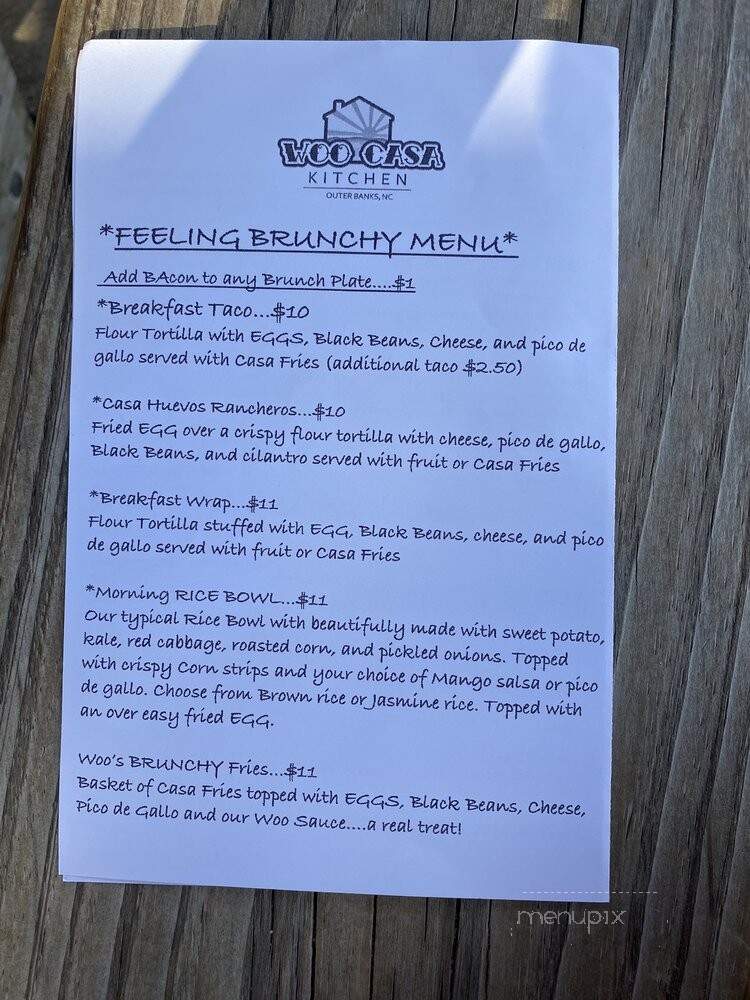 WOO CASA
KITCHEN
OUTER BANKS, NC
*FEELING BRUNCHY MENU*
Add BAcon to any Brunch Plate....$1
*Breakfast Taco...$10
Flour Tortilla with EGGS, Black Beans, Cheese, and pico de
gallo served with Casa Fries (additional taco $2.50)
*Casa Huevos Rancheros...$10
Fried EGG over a crispy flour tortilla with cheese, pico de gallo,
Black Beans, and cilantro served with fruit or Casa Fries
*Breakfast Wrap...$11
Flour Tortilla stuffed with EGG, Black Beans, cheese, and pico
de gallo served with fruit or Casa Fries
*Morning RICE BOWL...$11
Our typical Rice Bowl with beautifully made with sweet potato,
kale, red cabbage, roasted corn, and pickled onions. Topped
with crispy Corn strips and your choice of Mango salsa or pico
de gallo. Choose from Brown rice or Jasmine rice. Topped with
an over easy fried EGG.
Woo's BRUNCHY Fries...$11
Basket of Casa Fries topped with EGGS, Black Beans, Cheese,
Pico de Gallo and our Woo Sauce....a real treat!
menupix